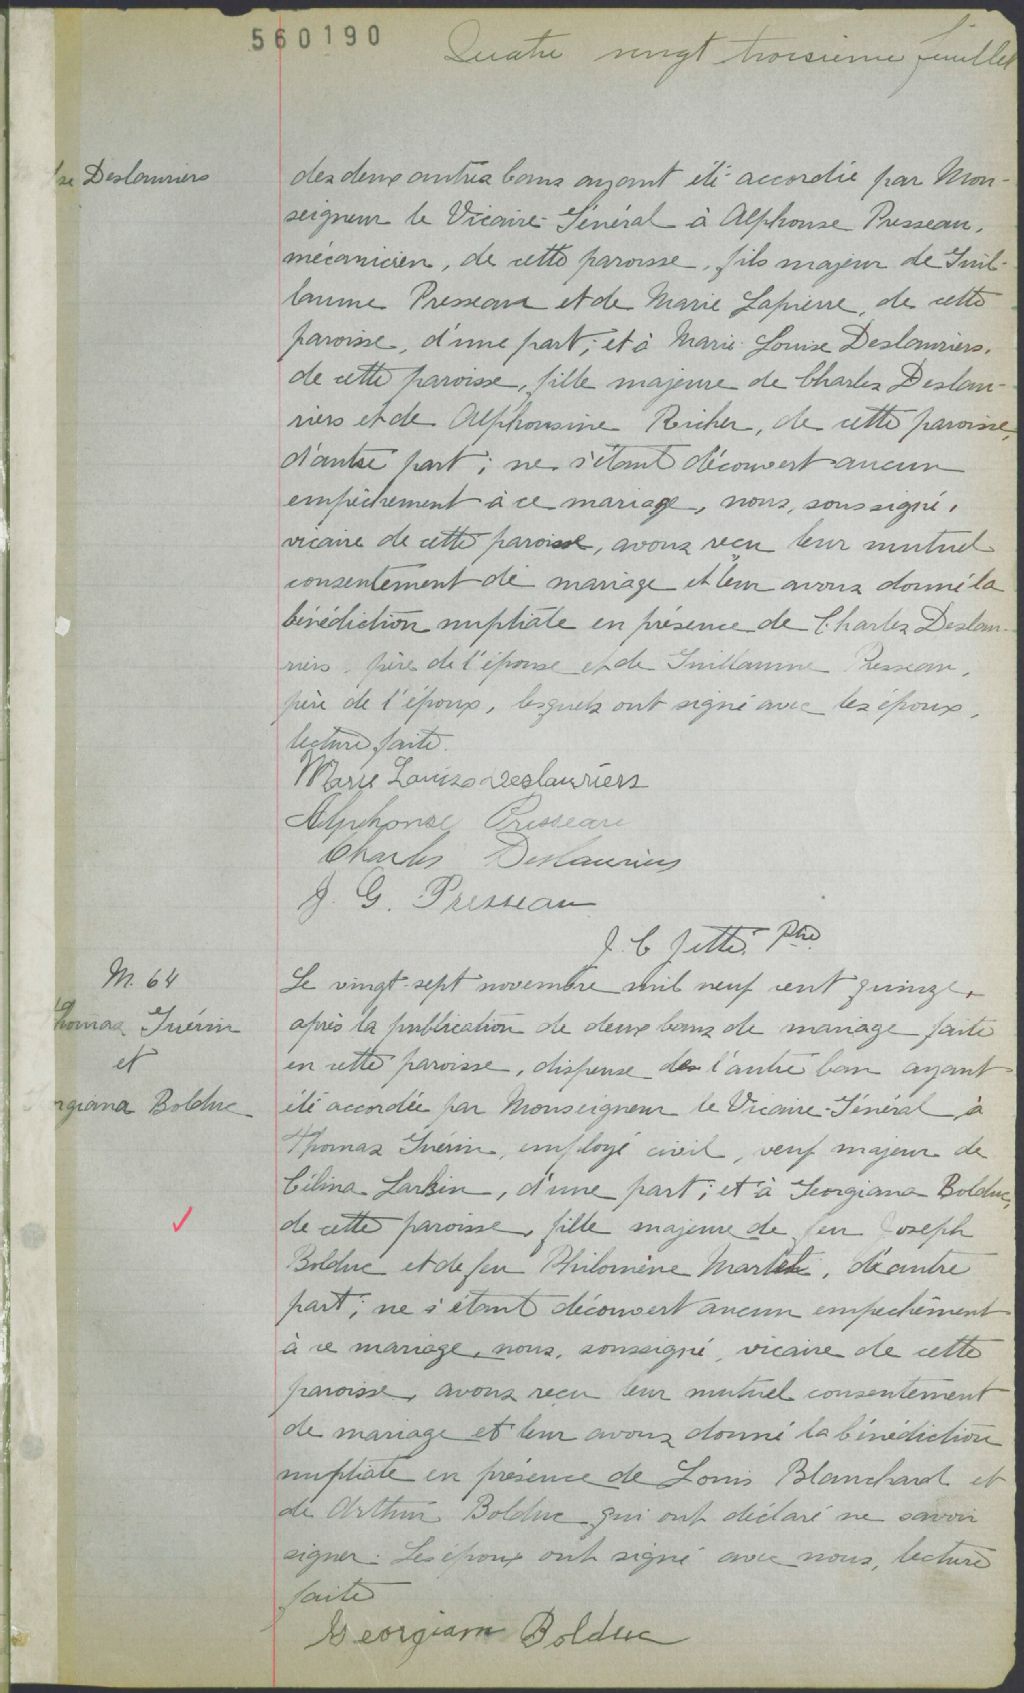 560190
Quatre vingt troisième feuillet
se Deslauriers
des deux autres bans ayant été accordée par Mon-
seigneur le Vicaire-Général à Alphonse Presseau,
mécanicien, de cette paroisse, fils majeur de Guil-
laume Presseau et de Marie Lapierre, de cette
paroisse, d'une part; et à Marie-Louise Deslauriers,
de cette paroisse, fille majeure de Charles Deslau-
riers et de Alphonsine Richer, de cette paroisse,
d'autre part; ne s'étant découvert aucun
empêchement à ce mariage, nous, soussigné,
vicaire de cette paroisse, avons reçu leur mutuel
consentement de mariage et leur avons donné la
bénédiction nuptiale en présence de Charles Deslau-
riers, père de l'épouse et de Guillaume Presseau,
père de l'époux, lesquels ont signé avec les époux,
lecture faite.
Marie Louise Deslauriers
Alphonse Presseau
Charles Deslauriers
J. G. Presseau
J. C. Jetté. Ptre
M. 64
Thomas Guérin
et
rgiana Bolduc
Le vingt-sept novembre mil neuf cent quinze,
après la publication de deux bans de mariage faite
en cette paroisse, dispense de l'autre ban ayant
été accordée par Monseigneur le Vicaire-Général à
Thomas Guérin, employé civil, veuf majeur de
Célina Larkin, d'une part; et à Georgiana Bolduc,
de cette paroisse, fille majeure de feu Joseph
Bolduc et de feu Philomène Martel, d'autre
part; ne s'étant découvert aucun empechêment
à ce mariage, nous, soussigné, vicaire de cette
paroisse, avons reçu leur mutuel consentement
de mariage et leur avons donné la bénédiction
nuptiale en présence de Louis Blanchard et
de Arthur Bolduc qui ont déclaré ne savoir
signer. Les époux ont signé avec nous, lecture
faite
Georgiana Bolduc